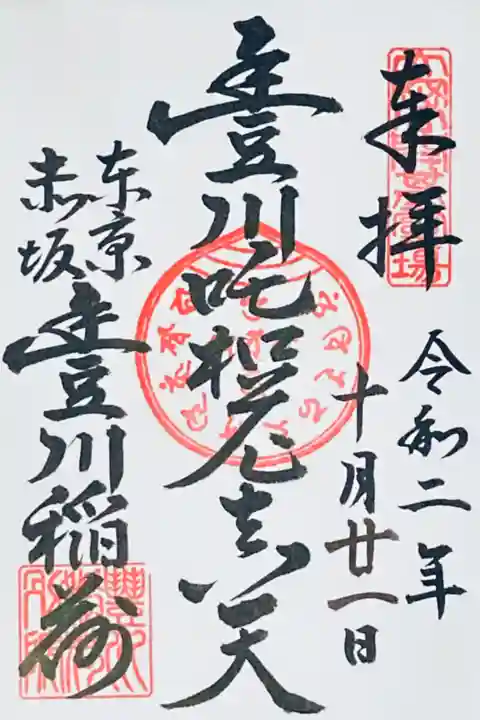 奉拝
令和二年
十月廿一日
豊川吒枳尼真天
東京
赤坂
豊川稲荷